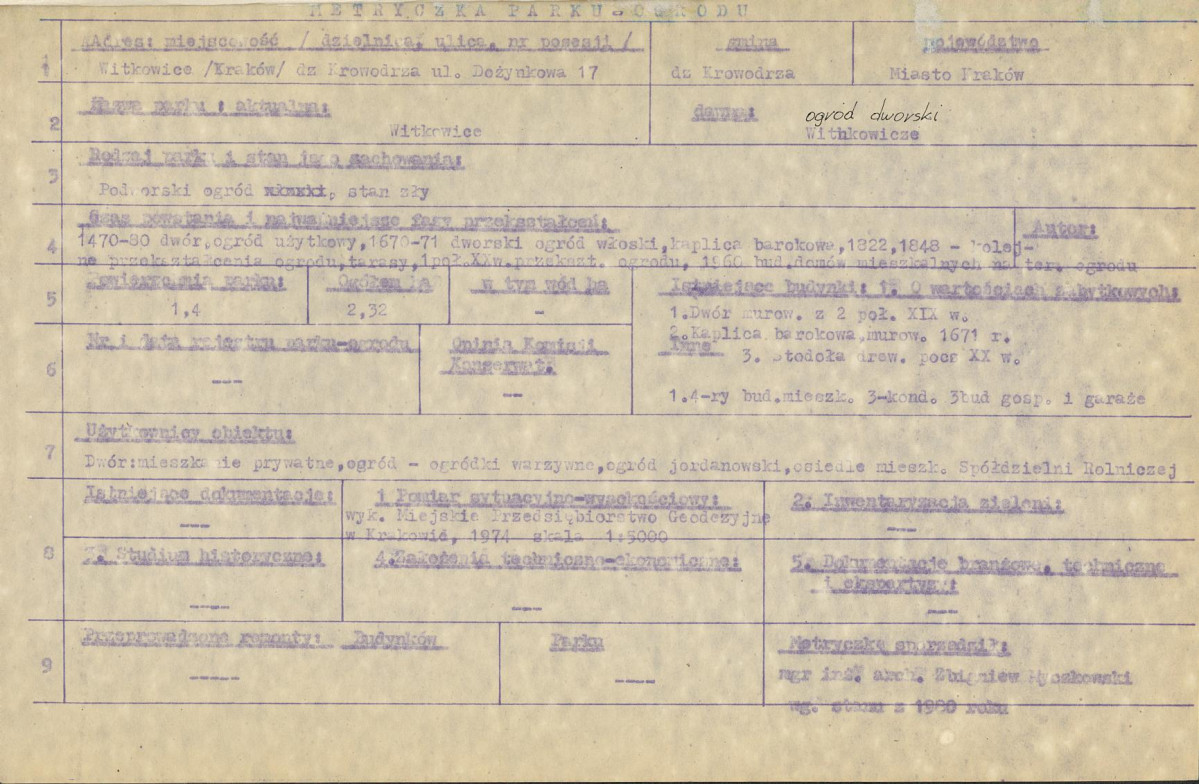 METRYCZKA PARKU-OGRODU
1 Adres: miejscowość / dzielnica, ulica, nr posesji / gmina województwo
Witkowice /Kraków/ dz Krowodrza ul. Dożynkowa 17 dz Krowodrza Miasto Kraków
2 Nazwa parku : aktualna: dawna: ogród dworski
Witkowice Withkowicze
3 Rodzaj parku i stan jego zachowania:
Podworski ogród włoski, stan zły
4 Czas powstania i najważniejsze fazy przekształceń: Autor:
1470-80 dwór,ogród użytkowy,1670-71 dworski ogród włoski,kaplica barokowa,1822,1848 - kolej-
ne przekształcenia ogrodu,tarasy,1poł.XXw.przekszt. ogrodu, 1960 bud.domów mieszkalnych na ter. ogrodu
5 Powierzchnia parku: Ogółem ha w tym wód ha Istniejące budynki: 1. O wartościach zabytkowych:
1,4 2,32 - 1.Dwór murow. z 2 poł. XIX w.
2.Kaplica barokowa,murow. 1671 r.
6 Nr i data rejestru parku-ogrodu Opinia Komisji Konserwat: Inne
--- -- 3. Stodoła drew. pocz XX w.
1.4-ry bud.mieszk. 3-kond. 3bud gosp. i garaże
7 Użytkownicy obiektu:
Dwór:mieszkanie prywatne,ogród - ogródki warzywne,ogród jordanowski,osiedle mieszk. Spółdzielni Rolniczej
8 Istniejące dokumentacje: 1 Pomiar sytuacyjno-wysokościowy: 2. Inwentaryzacja zieleni:
--- wyk. Miejskie Przedsiębiorstwo Geodezyjne ---
w Krakowie, 1974 skala 1:5000
3. Studium historyczne: 4.Założenia techniczno-ekonomiczne: 5. Dokumentacje branżowe, techniczne
i ekspertyzy:
---- --- ---
9 Przeprowadzone remonty: Budynków Parku Metryczkę sporządził:
----- ---- mgr inż. arch. Zbigniew Myczkowski
wg. stanu z 1980 roku